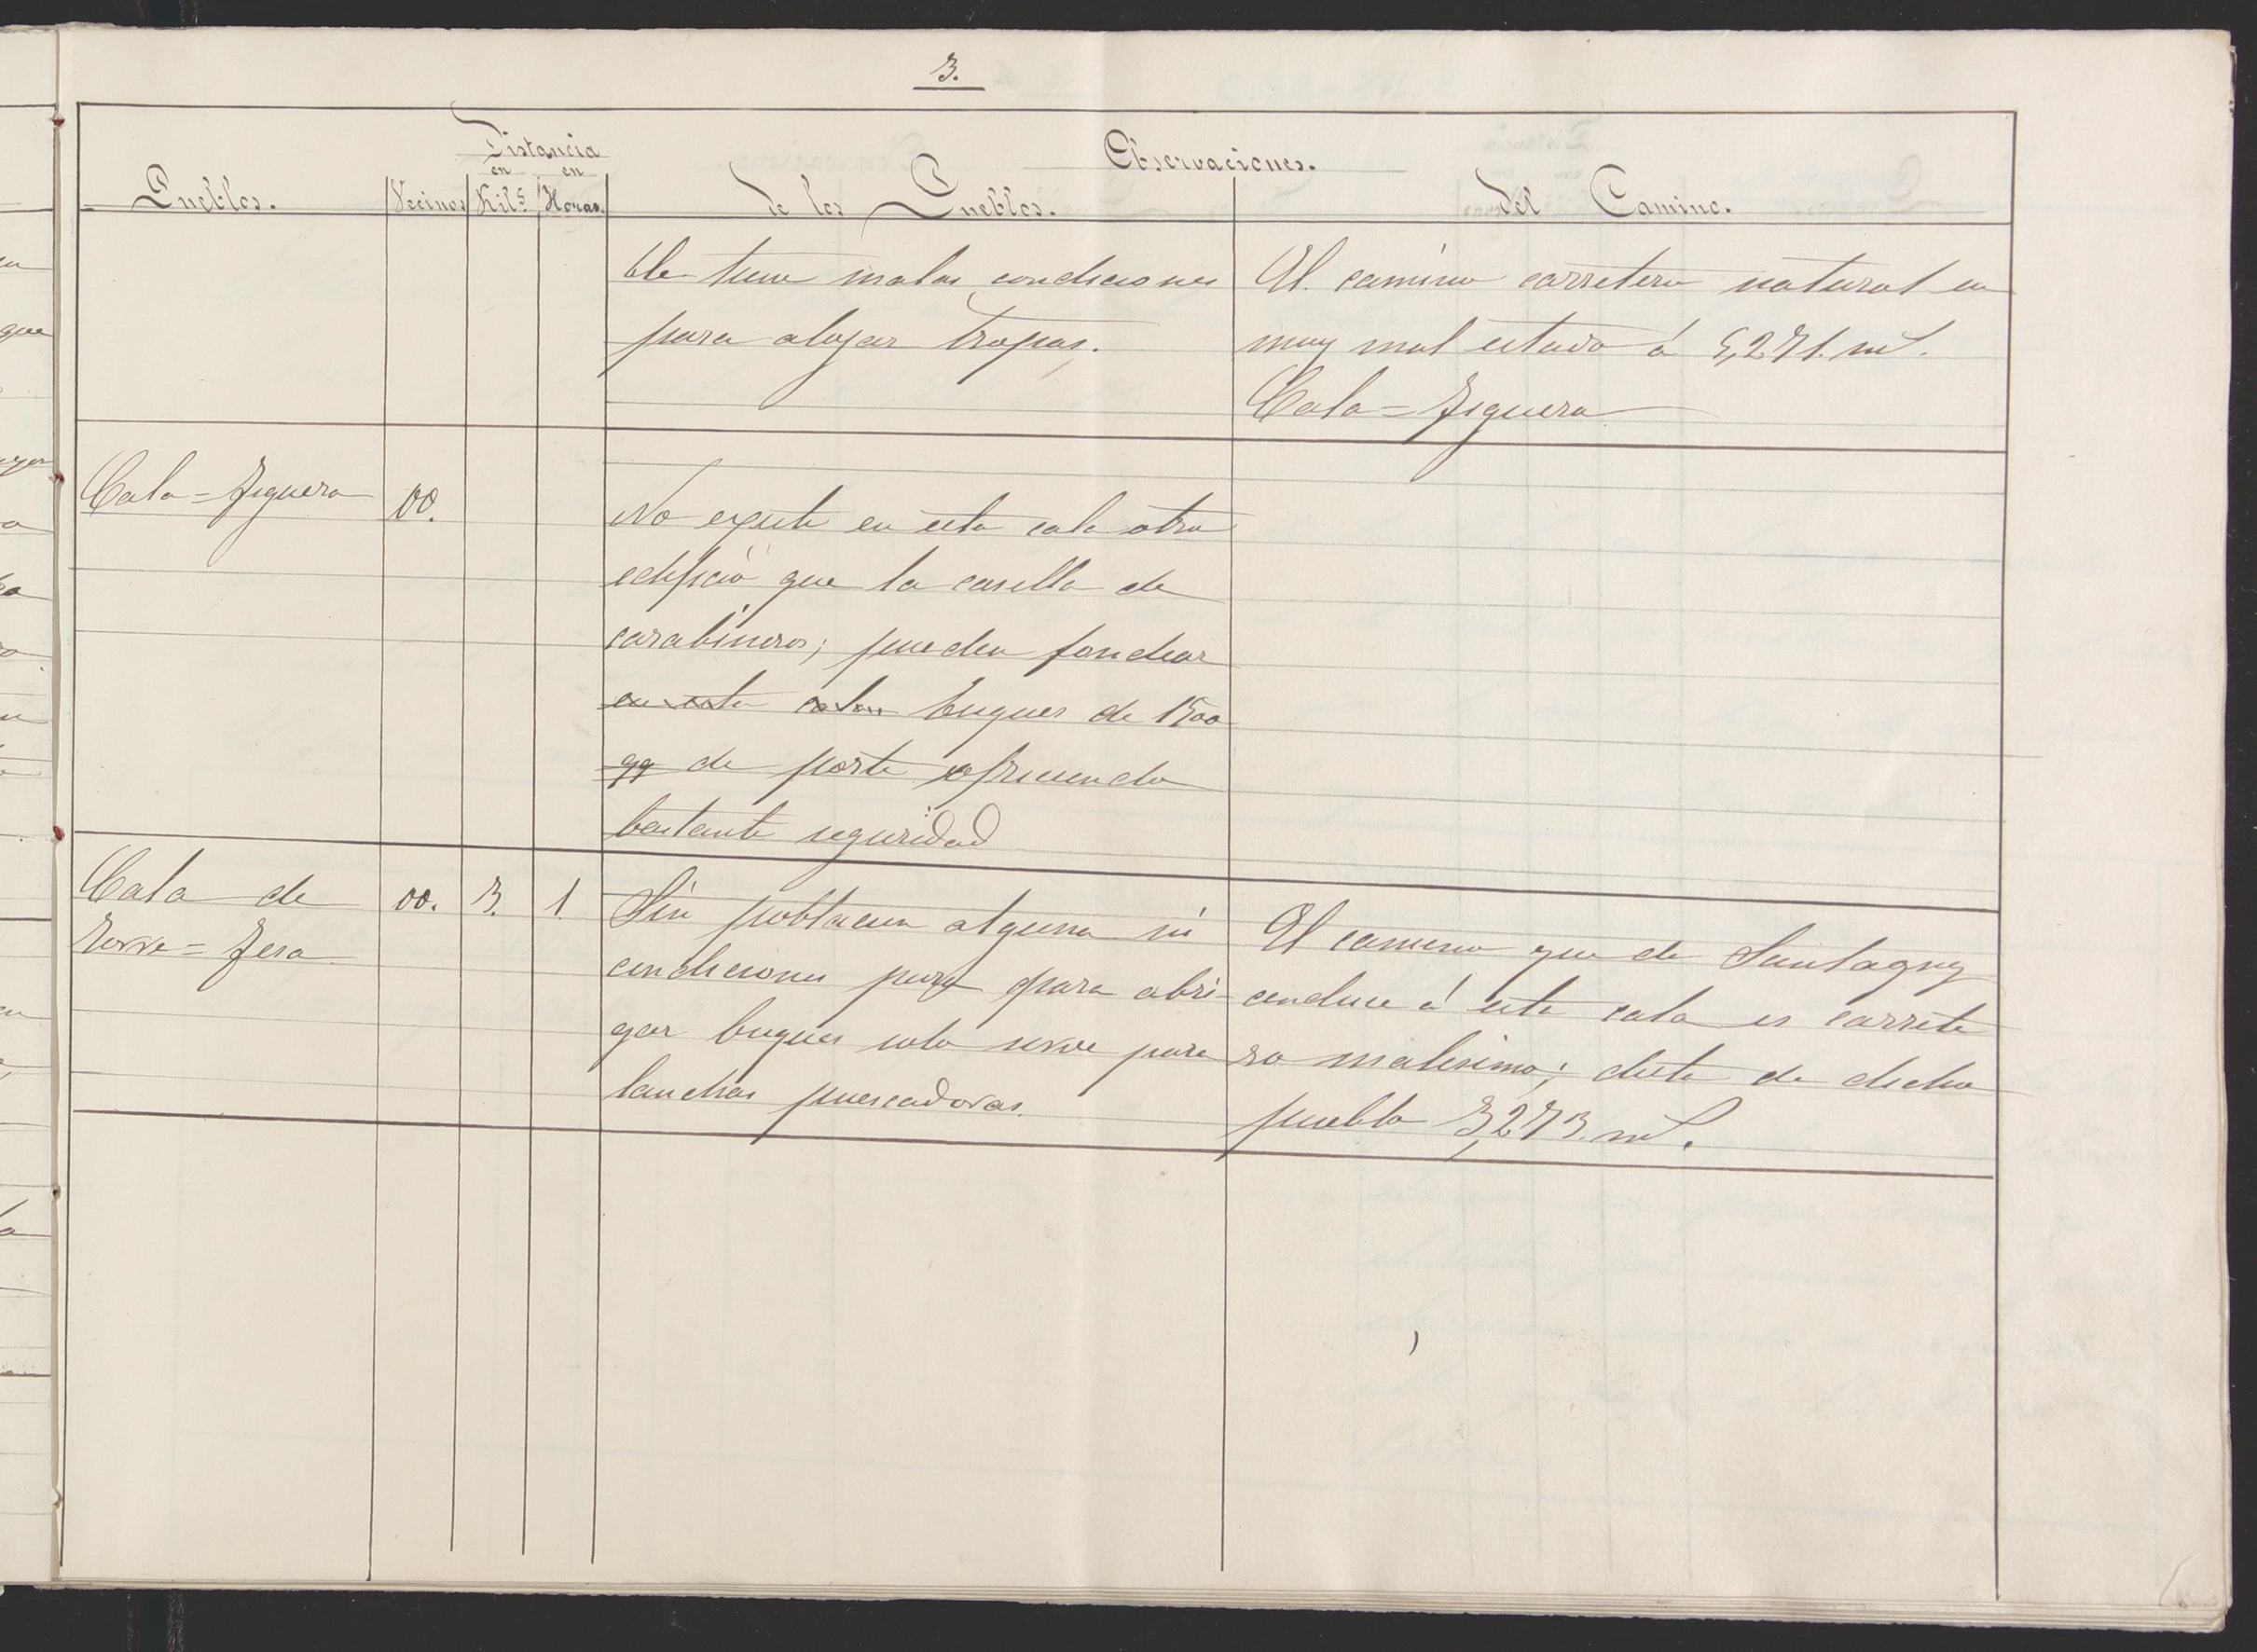 3.
Distancia
Observaciones.
en en
Pueblos. Vecinos Kil.s Horas. de los Pueblos. del Camino.
ble tiene malas condiciones
para alojar tropas.
El camino carretero natural en
muy mal estado á 5,271. mt.
Cala=Figuera
Cala=Figuera 00.
No existe en esta cala otro
edificio que la casilla de
carabineros; pueden fondear
en esta cala buques de 1500
qq de porte ofreciendo
bastante seguridad
Cala de 00. 3. 1.
Torre=Fesa
Sin poblacion alguna ni
condiciones para para abri-
gar buques solo sirve para
lanchas puescadoras.
El camino que de Santagny
conduce á esta cala es carrete
ro malisimo; dista de dicho
pueblo 3,273. mt.